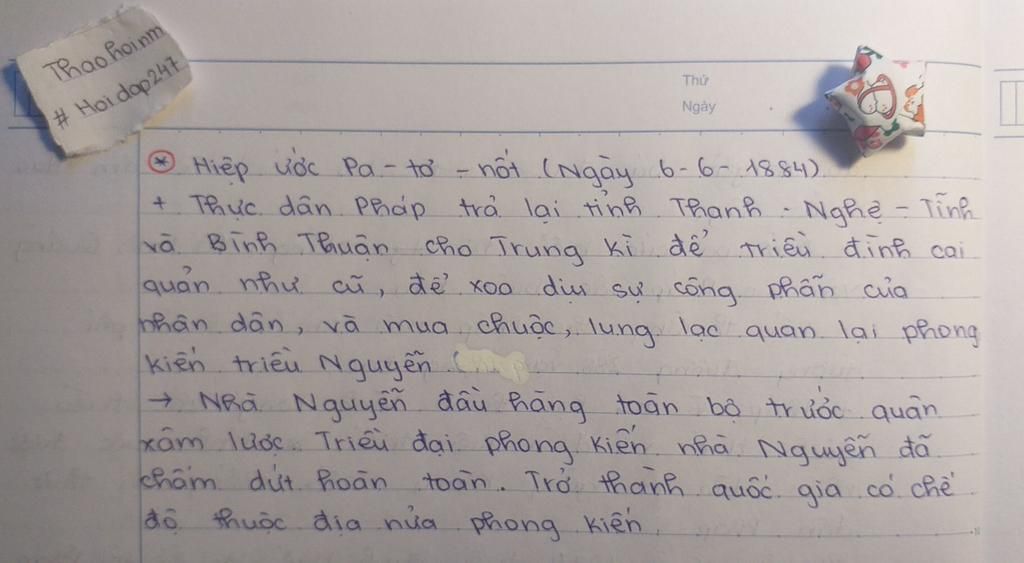 Thaohoinm
# Hoidap247
Thứ
Ngày
* Hiệp ước Pa - tơ - nốt (Ngày 6-6-1884)
+ Thực dân Pháp trả lại tỉnh Thanh - Nghệ - Tĩnh
và Bình Thuận cho Trung kì để triều đình cai
quản như cũ, để xoa dịu sự công phẫn của
nhân dân, và mua chuộc, lung lạc quan lại phong
kiến triều Nguyễn
→ Nhà Nguyễn đầu hàng toàn bộ trước quân
xâm lược. Triều đại phong kiến nhà Nguyễn đã
chấm dứt hoàn toàn. Trở thành quốc gia có chế
độ thuộc địa nửa phong kiến.